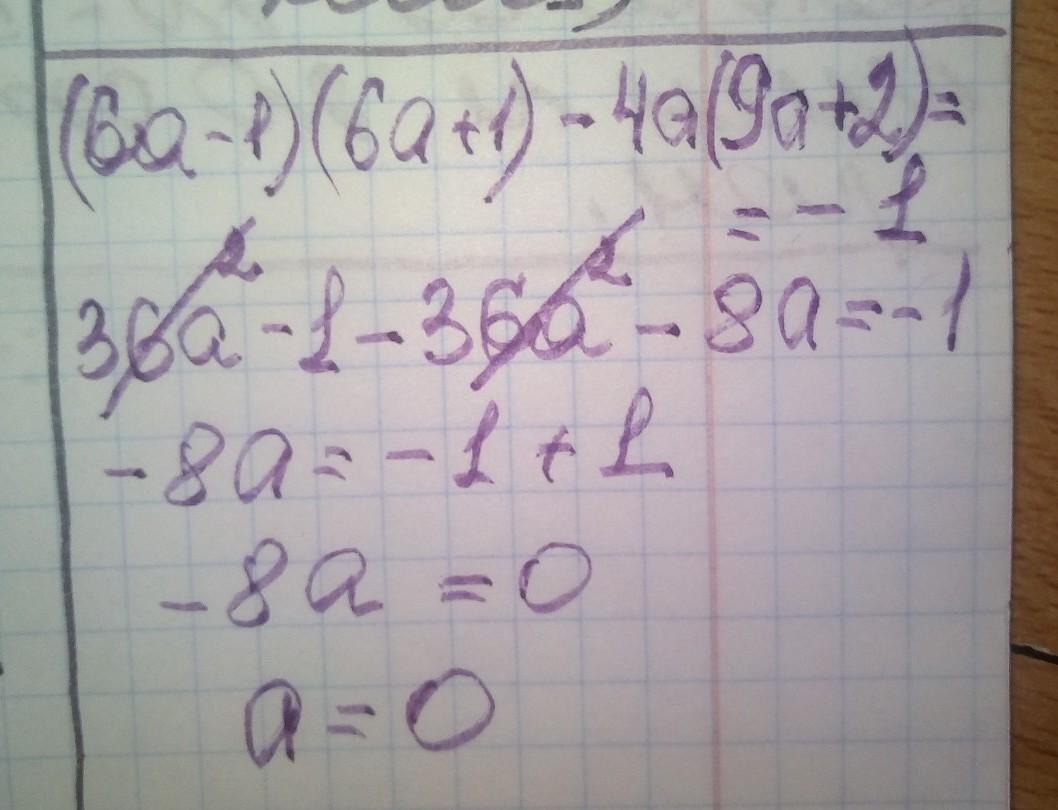 (6a-1)(6a+1)-4a(9a+2)=
=-1
36a²-1-36a²-8a=-1
-8a=-1+1
-8a=0
a=0